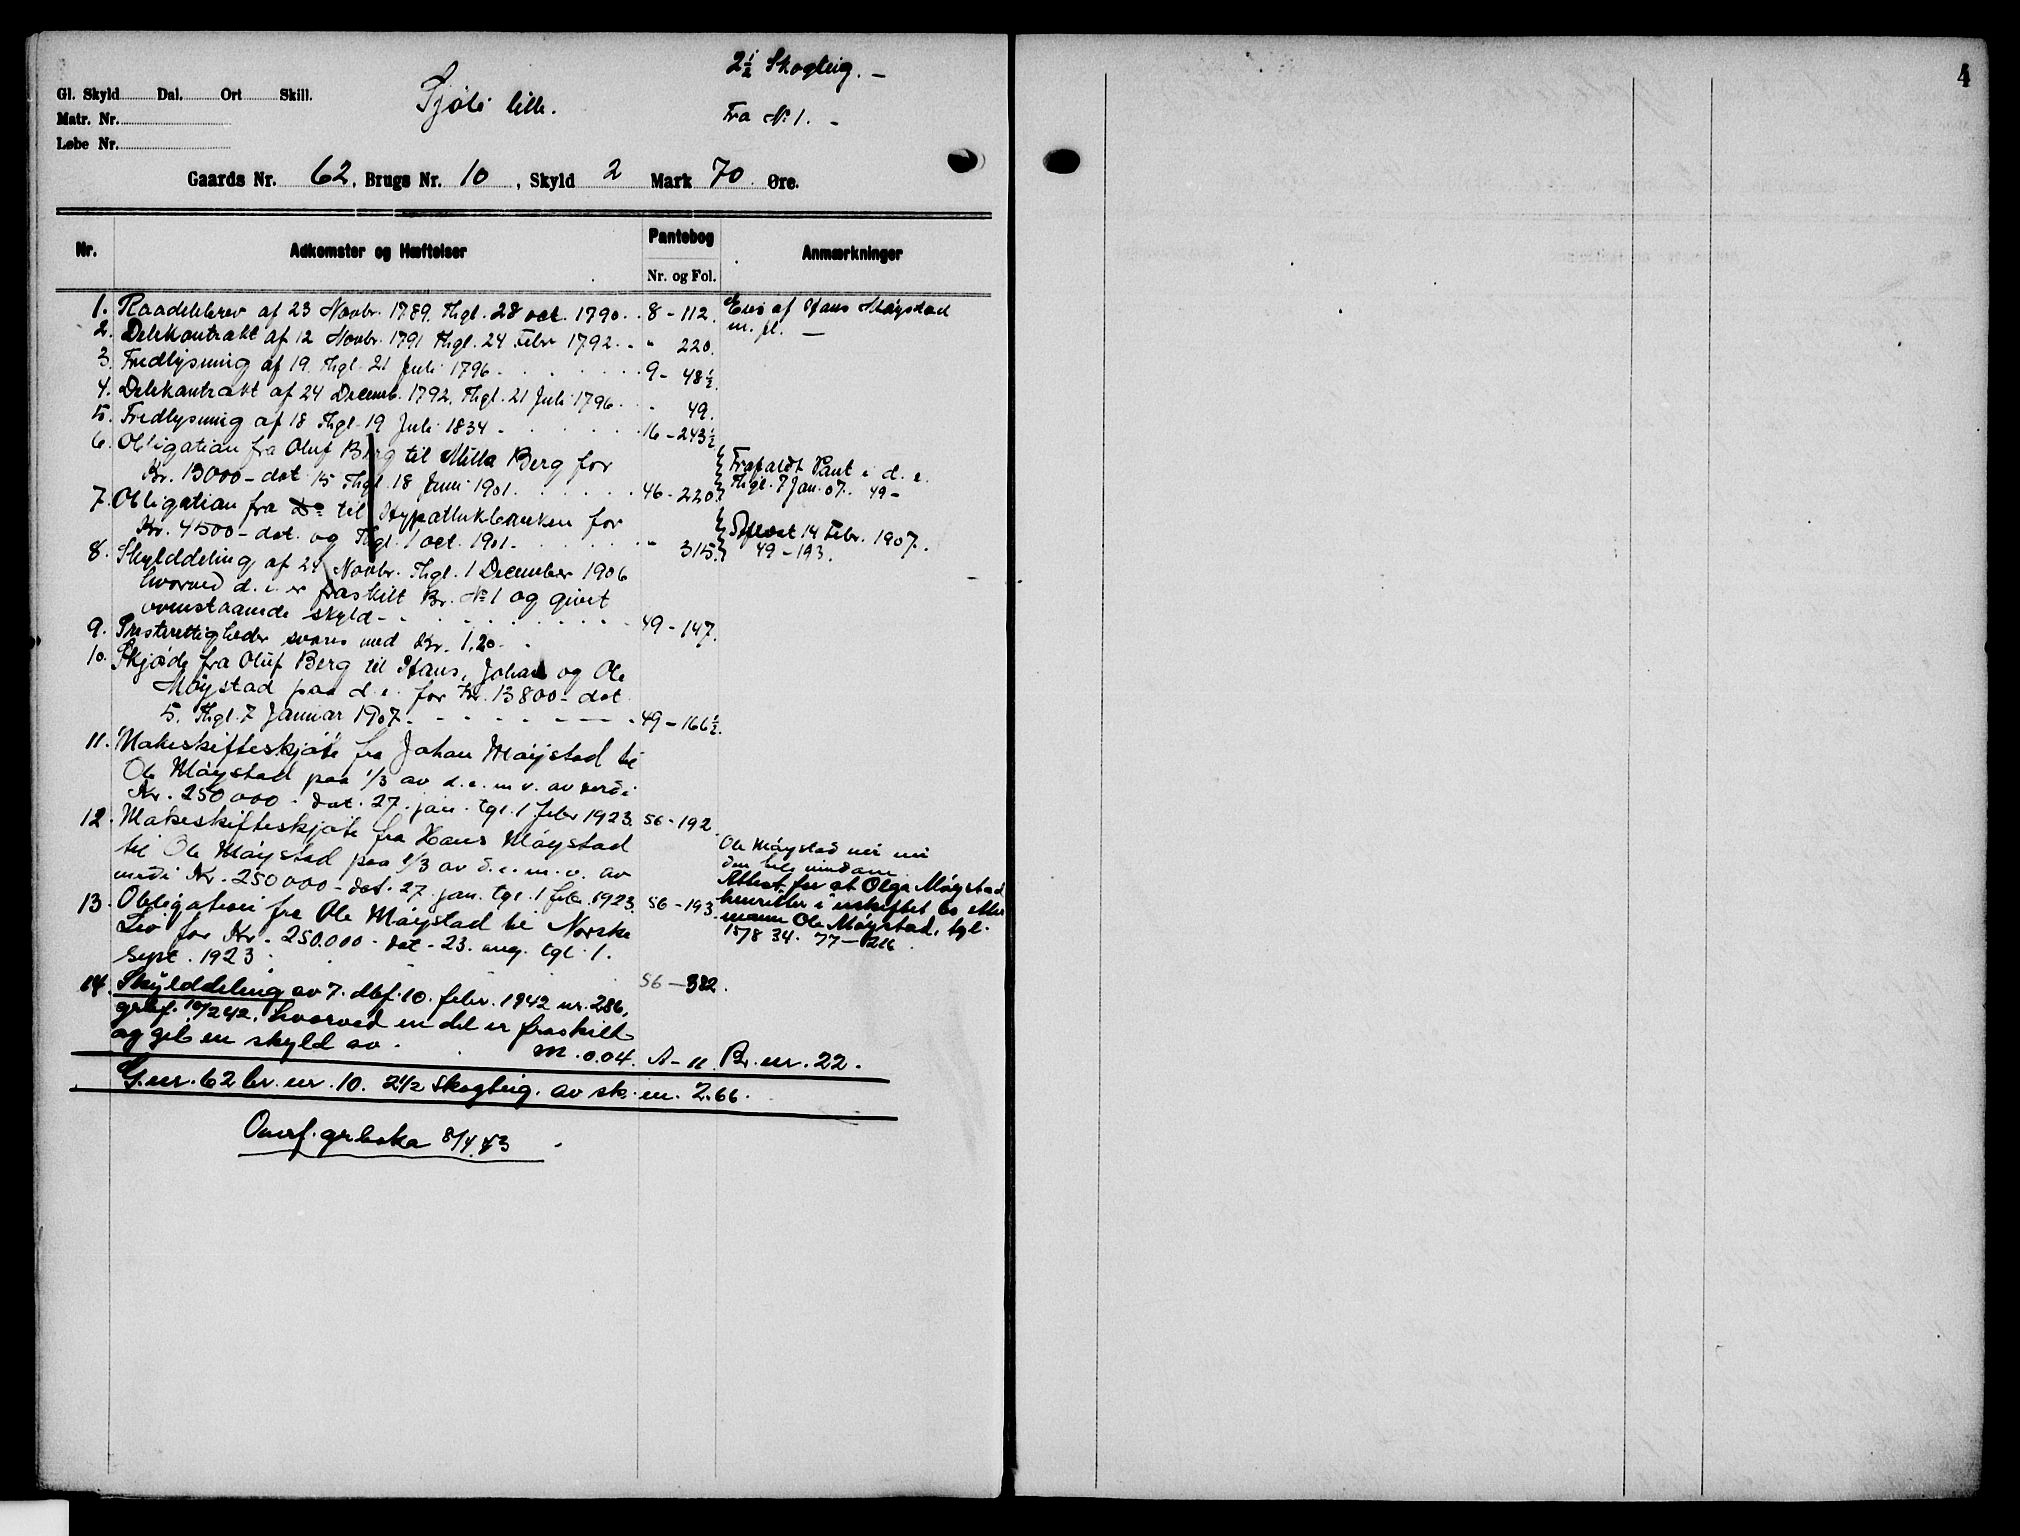 2½ Skogteig. –
Gl. Skyld Dal. Ort Skill.
Sjøli lille.
Matr. Nr.
Fra No 1. –
Løbe Nr.
Gaards Nr. 62, Brugs Nr. 10, Skyld 2 Mark 70 Øre.
Nr. Adkomster og Hæftelser Pantebog Nr. og Fol. Anmærkninger
1. Raadelsbrev af 23 Novbr. 1789. Thgl. 28 oct. 1790. 8 - 112. Eies af Hans Møystad
m. fl. —
2. Delekontrakt af 12 Novbr. 1791 Thgl. 24 Febr 1792. " 220.
3. Fredlysning af 19. Thgl. 21 Juli 1796 9 - 48½.
4. Delekontrakt af 24 Decemb. 1792. Thgl. 21 Juli 1796 " 49.
5. Fredlysning af 18 Thgl. 19 Juli 1834 16 - 243½
6. Obligation fra Oluf Berg til Milla Berg for
Kr. 13000 - dat 15 Thgl. 18 Juni 1901. 46 - 220. Frafaldt Pant i d. e.
Thgl. 7 Jan. 07. 49 -
7. Obligation fra Do til Hypothekbanken for
Kr. 4500 - dat. og Thgl. 1 oct. 1901. " 315. Aflæst 14 Febr. 1907.
49 - 193.
8. Skylddeling af 24 Novbr. Thgl. 1 December 1906
hvorved d. e. er fraskilt Br. No 1 og givet
ovenstaaende skyld - 49 - 147.
9. Presterettigheder svares med Kr. 1,20.
10. Skjøde fra Oluf Berg til Hans, Johan og Ole
Møystad paa d. e. for Kr. 13800 - dat.
5. Thgl. 7 Januar 1907. 49 - 166½.
11. Makeskifteskjøte fra Johan Møystad til
Ole Møystad paa 1/3 av d. e. m. v. av verdi
Kr. 250 000 - dat. 27. jan. tgl. 1 febr 1923. 56 - 192.
12. Makeskifteskjøte fra Hans Møystad
til Ole Møystad paa 1/3 av d. e. m. v. av
verdi Kr. 250 000 - dat. 27. jan. tgl. 1 febr. 1923. 56 - 193.
Ole Møystad eier nu
den hele eiendom.
Attest for at Olga Møystad
hensitter i uskiftet bo etter
mann Ole Møystad, tgl.
15/8 34. 77 - 216.
13. Obligation fra Ole Møystad til Norske
Liv for Kr. 250.000 - dat. 23. aug. tgl. 1.
sept. 1923. 56 - 382.
14. Skylddeling av 7. dbf. 10. febr. 1942 nr. 286,
grbf. 10/2 42, hvorved en del er fraskilt
og gitt en skyld av m. 0.04. A - 11. Br. nr. 22.
G. nr. 62 br. nr. 10. 2 1/2 Skogteig. av sk. m. 2.66.
Overf. grboka 8/4. 43
4